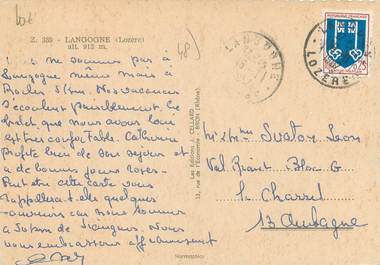 Z. 350 - LANGOGNE (Lozère)
alt. 913 m
48
ne sommes pas à
Langogne même mais à
Rocles 5 km. Nos vacances
s'écoulent paisiblement. Le
chalet que nous avons loué
est très confortable. Catherine
profite bien de son séjour et
a de bonnes joues roses.
Peut être cette carte vous
rappellera t'elle quelques
souvenirs car nous sommes
à 20 km de Langogne. Nous
vous embrassons affectueusement
Les Editions J. CELLARD
12, rue de l'Economie - BRON (Rhône)
LANGOGNE
LOZERE
REPUBLIQUE FRANCAISE
Mr & Mme Léon
Val Riant Bloc G
le Charrel
13 Aubagne